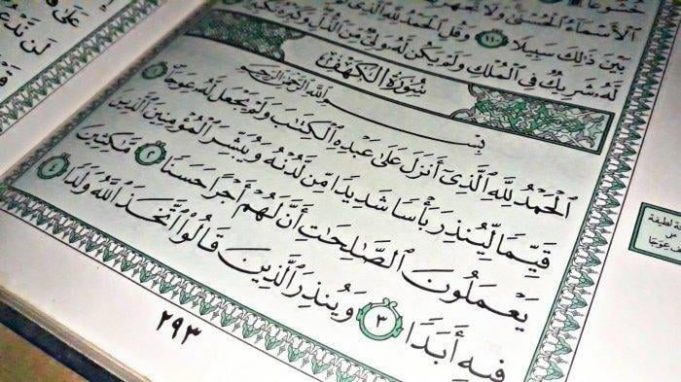 ٱلْأَسْمَآءُ ٱلْحُسْنَىٰ وَلَا تَجْهَرْ
بَيْنَ ذَٰلِكَ سَبِيلًا ١١٠ وَقُلِ ٱلْحَمْدُ لِلَّهِ ٱلَّذِى
لَّهُۥ شَرِيكٌ فِى ٱلْمُلْكِ وَلَمْ يَكُن لَّهُۥ وَلِىٌّ مِّنَ ٱلذُّلِّ وَكَبِّرْهُ
سُورَةُ الكَهْفِ
بِسْمِ ٱللَّهِ ٱلرَّحْمَٰنِ ٱلرَّحِيمِ
ٱلْحَمْدُ لِلَّهِ ٱلَّذِىٓ أَنزَلَ عَلَىٰ عَبْدِهِ ٱلْكِتَٰبَ وَلَمْ يَجْعَل لَّهُۥ عِوَجَا ١
قَيِّمًا لِّيُنذِرَ بَأْسًا شَدِيدًا مِّن لَّدُنْهُ وَيُبَشِّرَ ٱلْمُؤْمِنِينَ ٱلَّذِينَ
يَعْمَلُونَ ٱلصَّٰلِحَٰتِ أَنَّ لَهُمْ أَجْرًا حَسَنًا ٢ مَّٰكِثِينَ
فِيهِ أَبَدًا ٣ وَيُنذِرَ ٱلَّذِينَ قَالُوا۟ ٱتَّخَذَ ٱللَّهُ وَلَدًا ٤
٢٩٣
لطيفة
عوجا